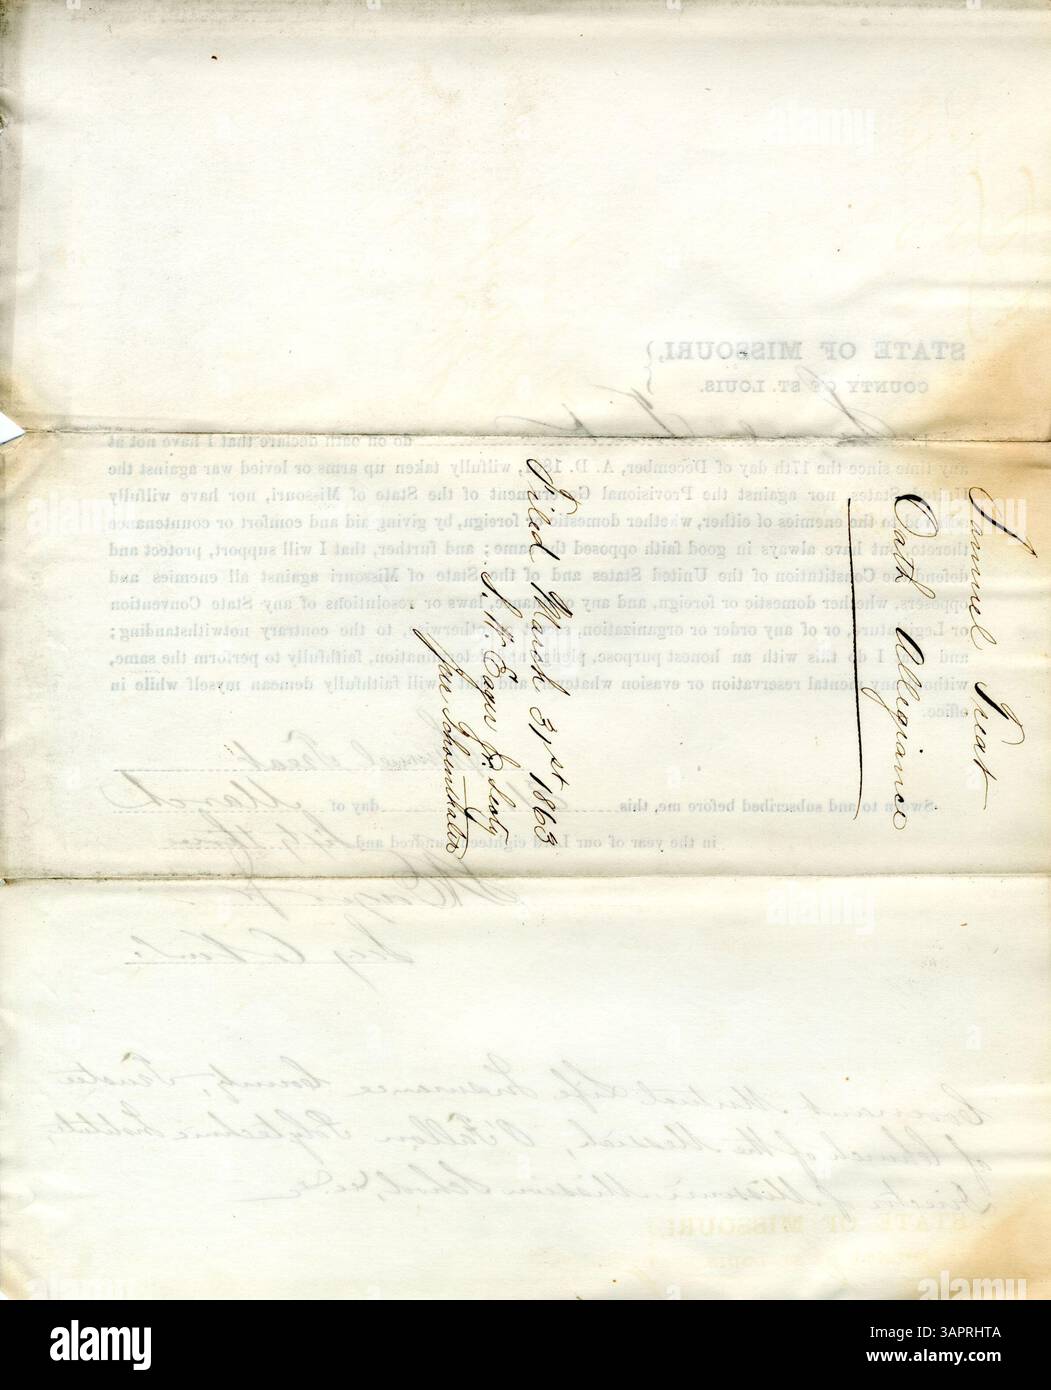 Samuel Treat
Oath Allegiance
Filed March 31st 1863
S. W. Eager, Jr. Secty
STATE OF MISSOURI,
COUNTY OF ST. LOUIS.
do on oath declare that I have not at
any time since the 17th day of December, A. D. 1861, wilfully taken up arms or levied war against the
United States, nor against the Provisional Government of the State of Missouri, nor have wilfully
adhered to the enemies of either, whether domestic or foreign, by giving aid and comfort or countenance
thereto, but have always in good faith opposed the same; and further, that I will support, protect and
defend the Constitution of the United States and of the State of Missouri against all enemies and
opposers, whether domestic or foreign, and any ordinance, laws or resolutions of any State Convention
or Legislature, or of any order or organization, secret or otherwise, to the contrary notwithstanding;
and that I do this with an honest purpose, pledge and determination, faithfully to perform the same,
without any mental reservation or evasion whatever, and that I will faithfully demean myself while in
office.
Samuel Treat
Sworn to and subscribed before me, this 31st day of March
in the year of our Lord eighteen hundred and Sixty three
S W Eager Jr
Covenant Mutual Life Insurance Trustee
of Church of the Messiah, O'Fallon Polytechnic Institute,
Director of Missouri Mission School, &c. &c
STATE OF MISSOURI
alamy
Image ID: 3APRHTA
www.alamy.com